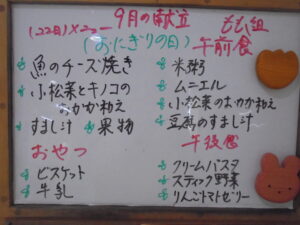 9月の献立
(おにぎりの日)
魚のチーズ焼き
小松菜とキノコの
おかか和え
すまし汁 果物
おやつ
ビスケット
牛乳
もも組
午前食
米粥
ムニエル
小松菜のおかか和え
豆腐のすまし汁
午後食
クリームパスタ
スティック野菜
りんごトマトゼリー